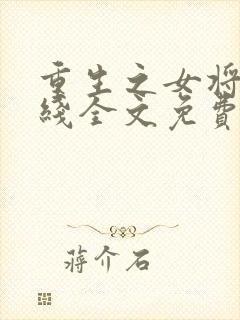 重生之女将
线全文免费
蒋介石